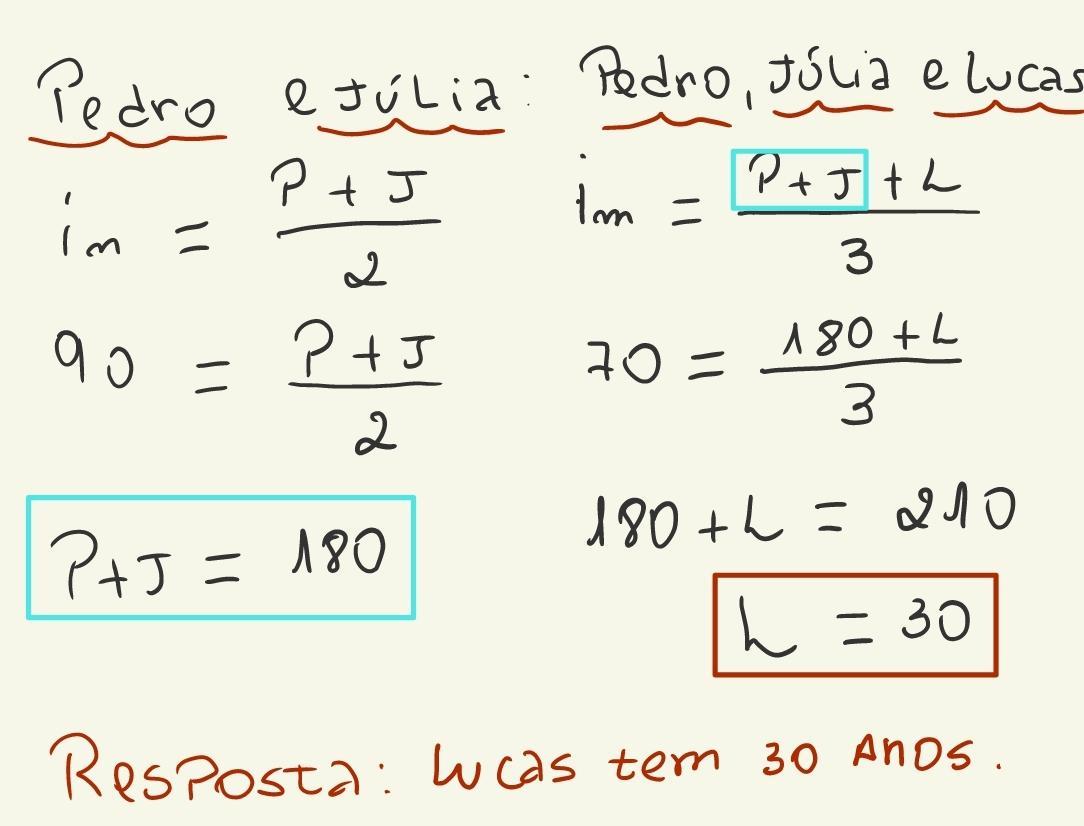 Pedro e JÚLia:
im = P + J / 2
90 = P + J / 2
P+J = 180
Pedro, JÚLia e Lucas
im = P + J + L / 3
70 = 180 + L / 3
180 + L = 210
L = 30
Resposta: Lucas tem 30 ANOS.